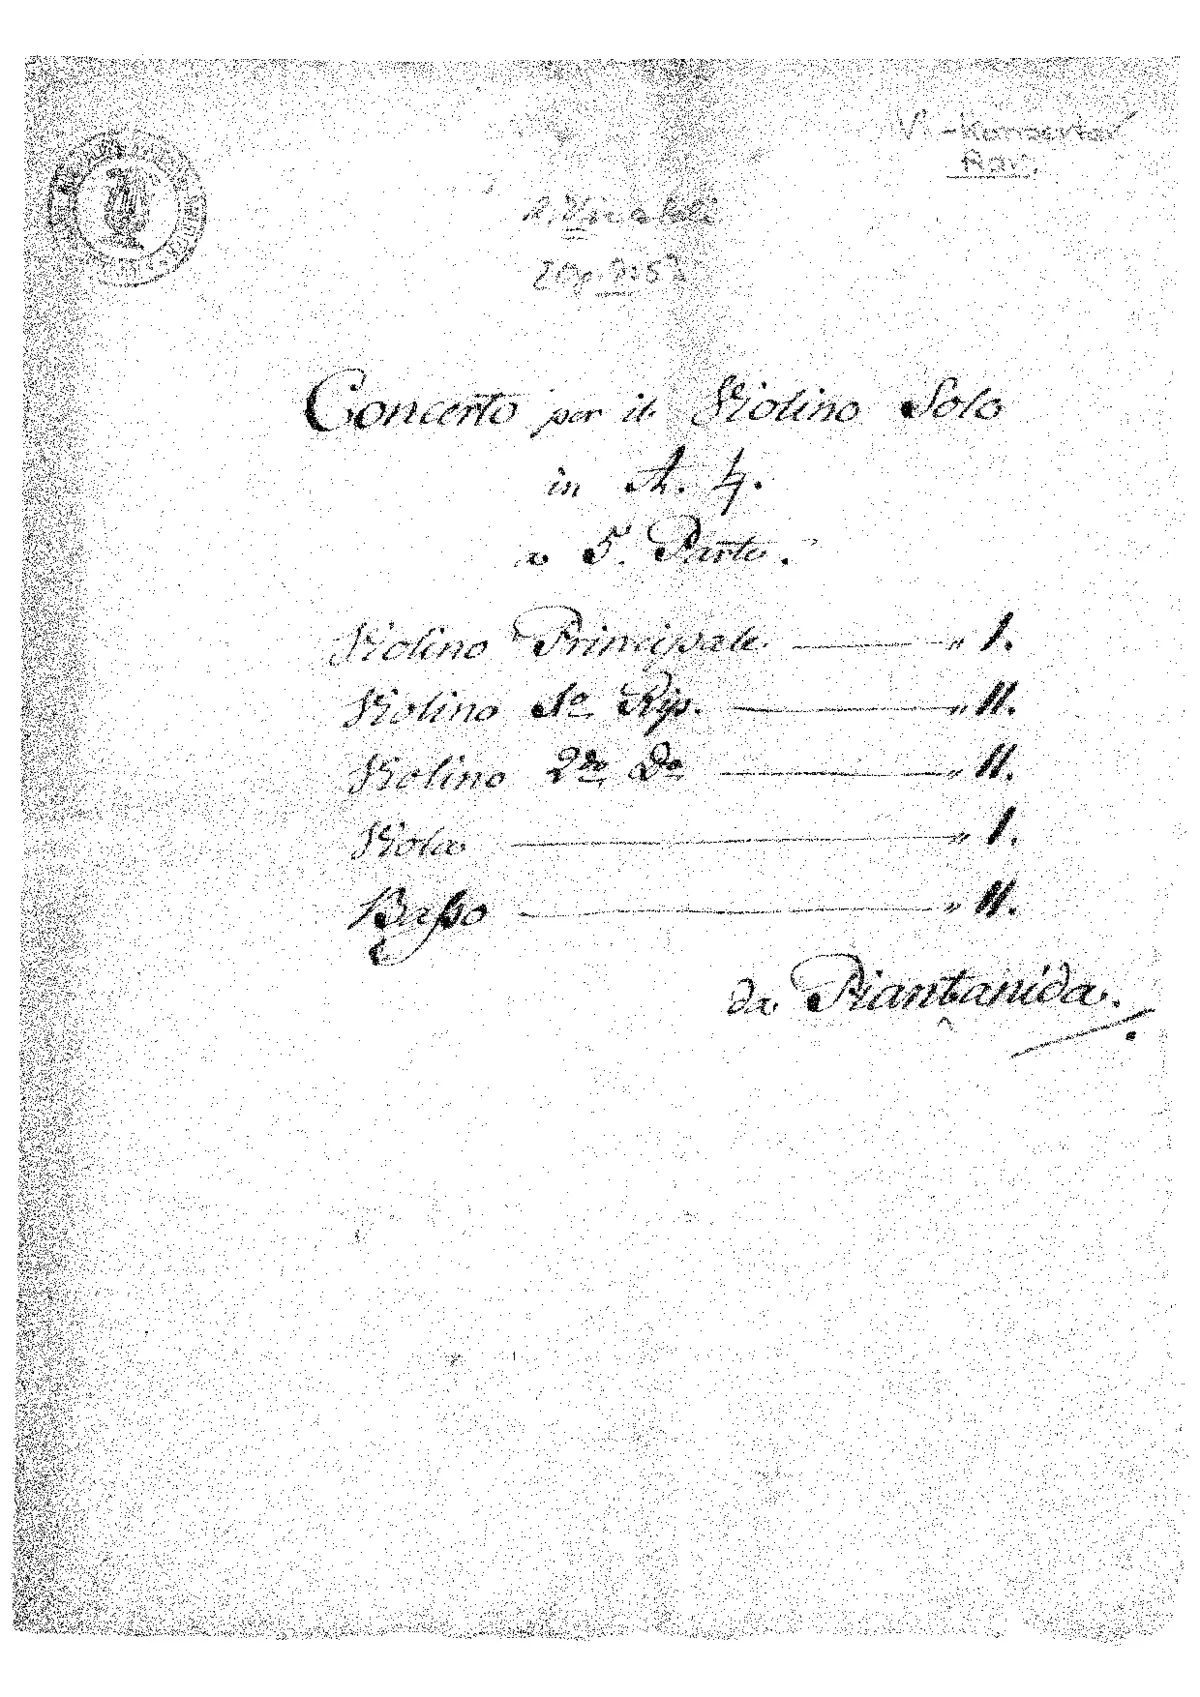 Vl-Konserter
Rar.
A. Vivaldi
Concerto per il Violino Solo
in A. ♮.
a 5. Parte.
Violino Principale. ——— " 1.
Violino 1o Rip. ——— " 11.
Violino 2do Do ——— " 11.
Viola ——— " 1.
Baßo ——— " 11.
da Piantanida.